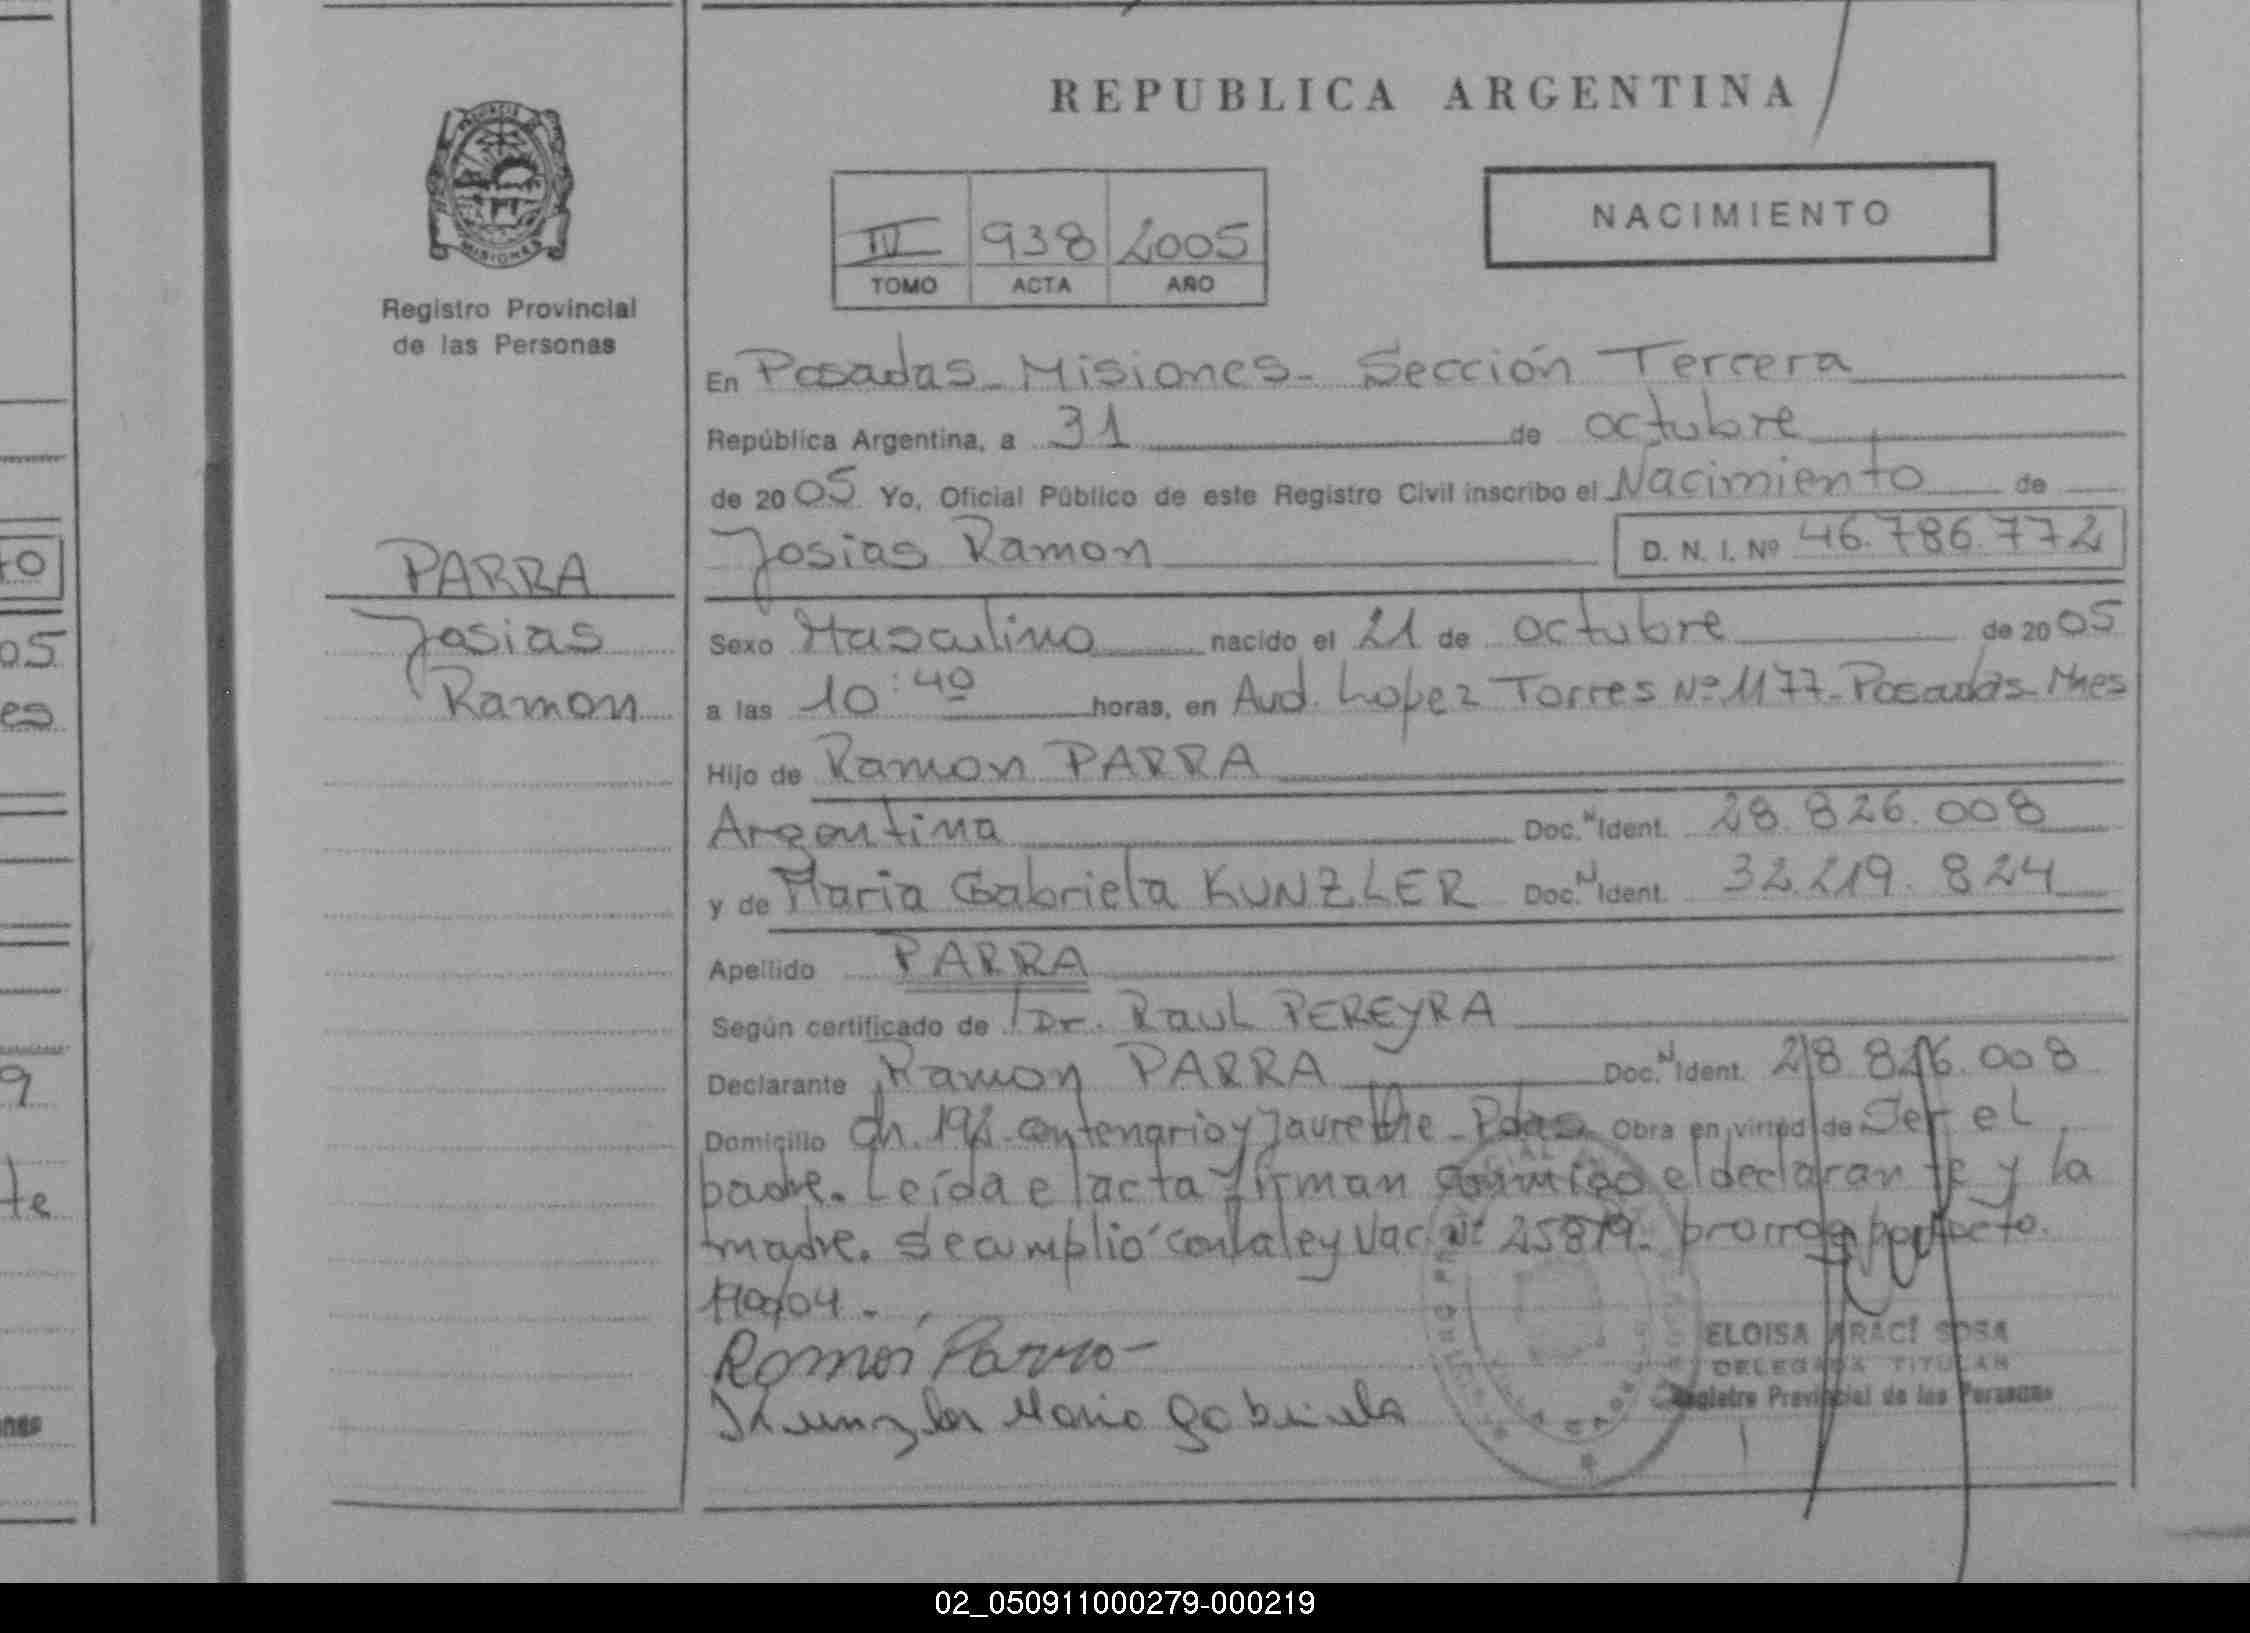 REPUBLICA ARGENTINA
NACIMIENTO
IV 938 2005
TOMO ACTA AÑO
Registro Provincial
de las Personas
PARRA
Josias
Ramon
En Posadas - Misiones - Sección Tercera
República Argentina, a 31 de octubre
de 2005 Yo, Oficial Público de este Registro Civil inscribo el Nacimiento de
Josias Ramon D. N. I. Nº 46.786.772
Sexo Masculino nacido el 21 de octubre de 2005
a las 10:40 horas, en Avd. Lopez Torres Nº 1177 - Posadas - Mnes
Hijo de Ramon PARRA
Argentina Doc. N Ident. 28.826.008
y de Maria Gabriela KUNZLER Doc. N Ident. 32.219.824
Apellido PARRA
Según certificado de Dr. Raul PEREYRA
Declarante Ramon PARRA Doc. N Ident. 28.826.008
Domicilio Ch. 192 - Centenario y Jaurethe - Pdas Obra en virtud de Ser el
padre. Leída el acta firman conmigo el declarante y la
madre. Se cumplió con la ley Vac. Nº 25819 - prorroga por Dcto.
Ramon Parra
Kunzler Maria Gabriela
ELOISA ARACÍ SOSA
DELEGADA TITULAR
Registro Provincial de las Personas
02_050911000279-000219